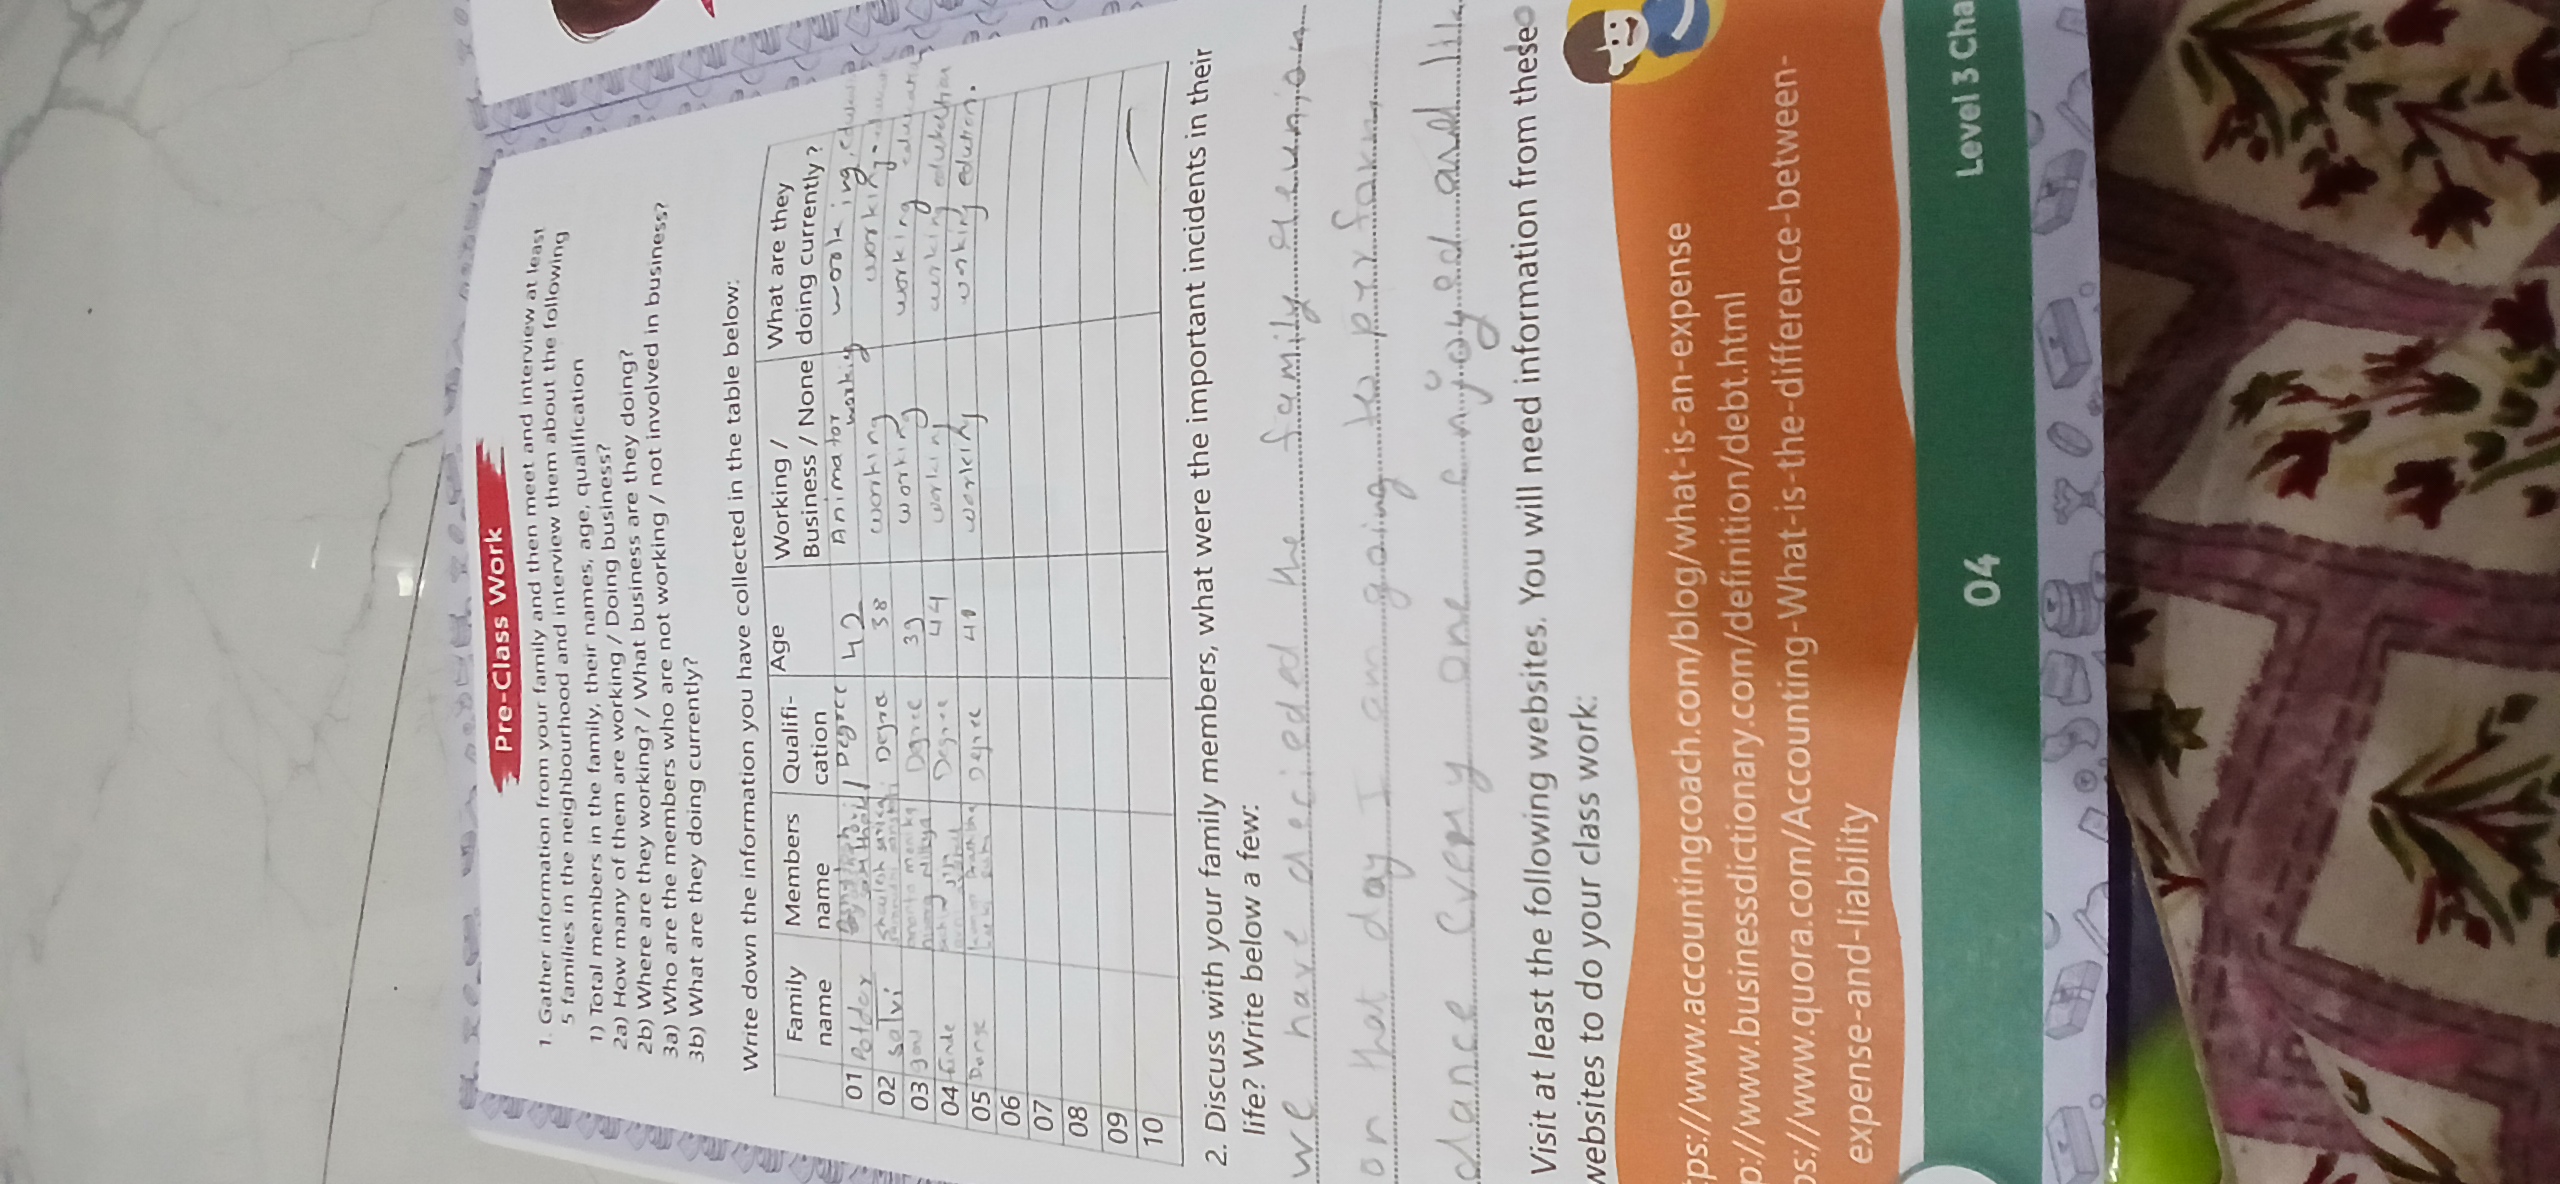 Pre-Class Work
1. Gather information from your family and then meet and interview at least
5 families in the neighbourhood and interview them about the following
1) Total members in the family, their names, age, qualification
2a) How many of them are working / Doing business?
2b) Where are they working? / What business are they doing?
3a) Who are the members who are not working / not involved in business?
3b) What are they doing currently?
Write down the information you have collected in the table below:
Family name Members name Qualifi-cation Age Working / Business / None What are they doing currently?
01 Potdar Degree 42 Animator working working,
02 Salvi Degre 38 working working
03 Degree 39 working working
04 Degree 44 working working edukation
05 Degree working working edution.
06
07
08
09
10
2. Discuss with your family members, what were the important incidents in their
life? Write below a few:
we have decieded the family reunion
on that day I am going to perform
dance every one enjoyed and
Visit at least the following websites. You will need information from these
websites to do your class work:
tps://www.accountingcoach.com/blog/what-is-an-expense
p://www.businessdictionary.com/definition/debt.html
ps://www.quora.com/Accounting-What-is-the-difference-between-
expense-and-liability
04
Level 3 Cha